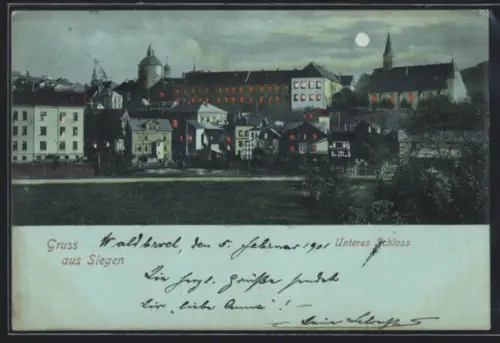 Gruss aus Siegen
Waldbroel, den 5. februar 1901
Unteres Schloss
Die herzl. Grüße sendet
Dir „liebe Anna"!
Deine